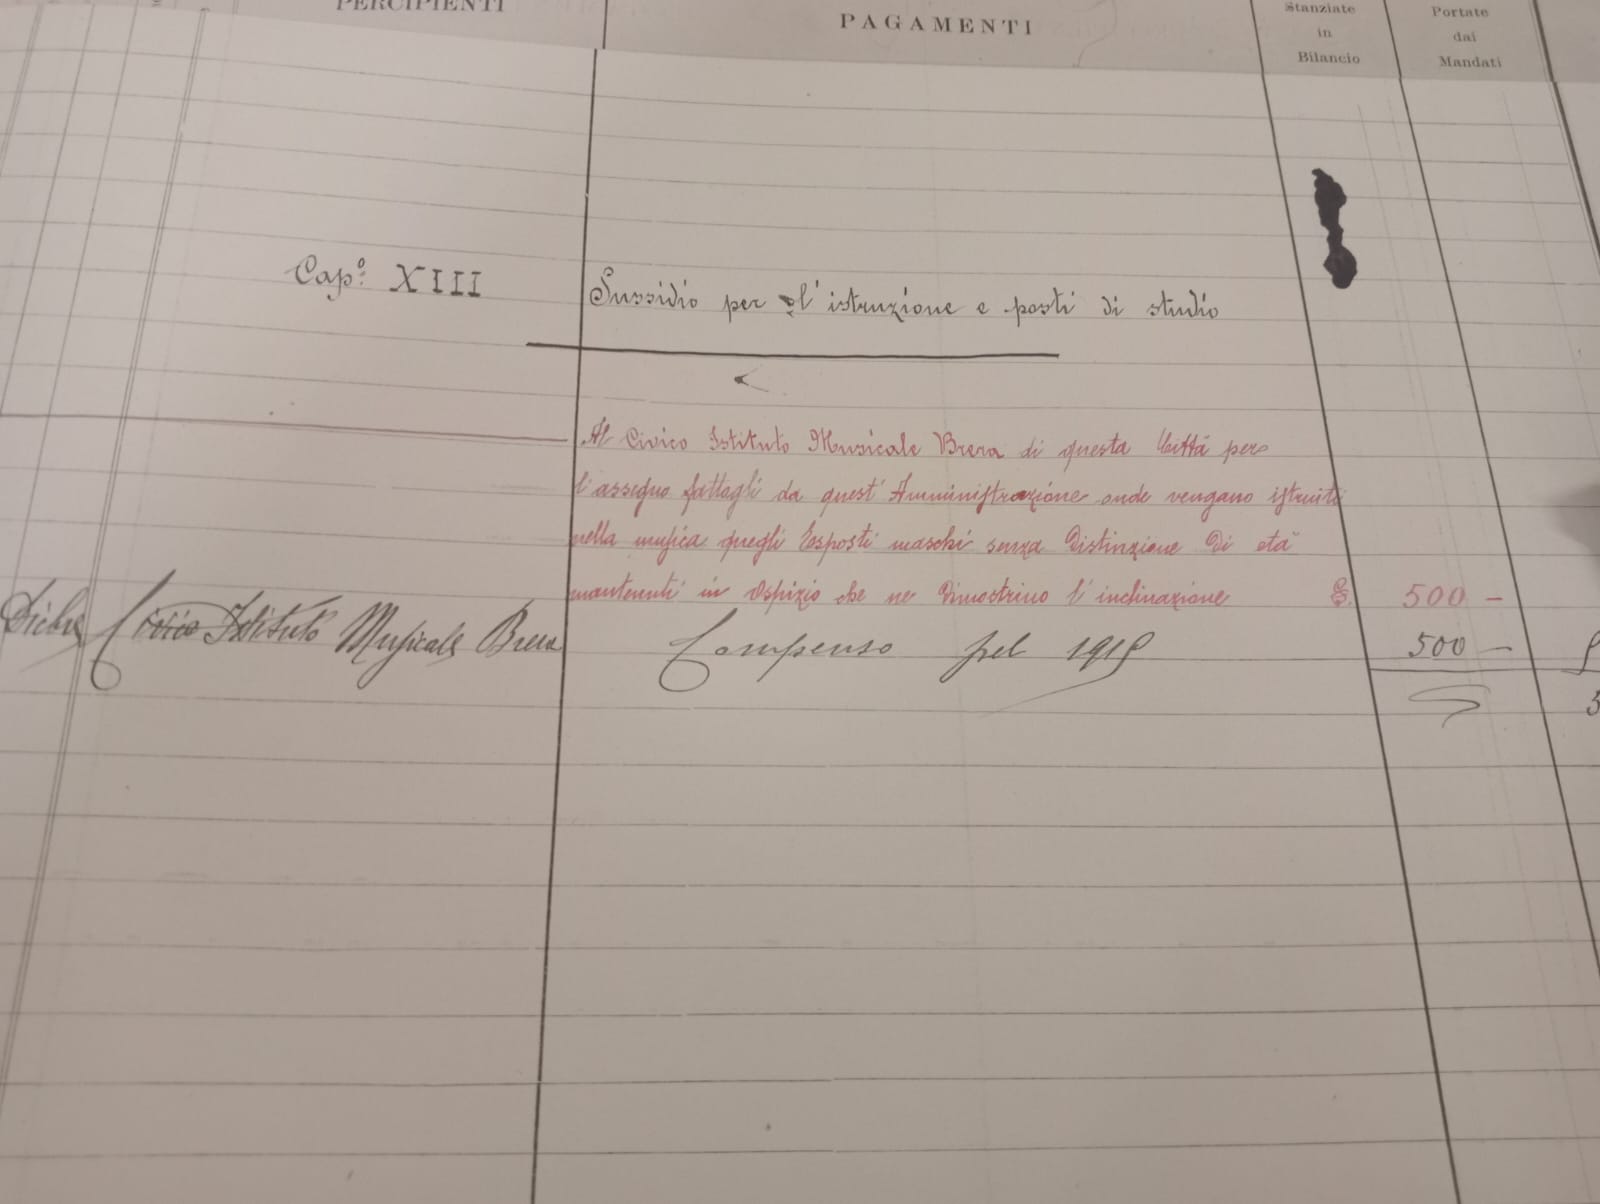 PERCIPIENTI
PAGAMENTI
Stanziate
in
Bilancio
Portate
dai
Mandati
Cap.º XIII
Sussidio per l'istruzione e posti di studio
Al Civico Istituto Musicale Brera di questa Città per
l'assegno fattogli da quest'Amministrazione onde vengano istruiti
nella musica quegli Esposti maschi senza distinzione di età
mantenuti in Ospizio che ne dimostrino l'inclinazione £. 500 –
Dicbre Civico Istituto Musicale Brera Compenso pel 1918 500 –